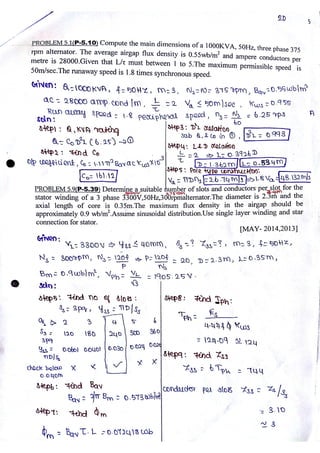 20
5
PROBLEM 5.1(P-5.10) Compute the main dimensions of a 1000KVA, 50Hz, three phase 375
rpm alternator. The average airgap flux density is 0.55wb/m² and ampere conductors per
metre is 28000.Given that L/τ must between 1 to 5.The maximum permissible speed is
50m/sec.The runaway speed is 1.8 times synchronous speed.
Given: Q=1000KVA, f=50Hz, m=3, Ns=N= 375 rpm, Bav=0.55wb/m²
ac = 28000 amp cond/m, L/τ = 2 Va ≤ 50m/sec, Kws=0.955
Run away speed = 1.8 peripheral speed, ns = Ns/60 = 6.25 rps
Soln:
Step1: Q, KVA rating
Q = C0D²L (6.25) →①
Step 2: Find C0
Op equation, C0 = 1.11π² Bav ac Kws x10⁻³
C0 = 161.12
Step 3: D²L relation
Sub Q, C0 in ①, D²L = 0.993
Step 4: L&D relation
L/τ = 2 ⇒ L = 0.392D
D = 1.362m L = 0.534m
Step 5: Pole type construction:
Va = πDns = 26.74m/s ⇒ 1.8 Va = 48.132m/s
PROBLEM 5.9(P-5.39) Determine a suitable number of slots and conductors per slot for the
stator winding of a 3 phase 3300V,50Hz,300rpmalternator.The diameter is 2.3m and the
axial length of core is 0.35m.The maximum flux density in the airgap should be
approximately 0.9 wb/m².Assume sinusoidal distribution.Use single layer winding and star
connection for stator.
[MAY- 2014,2013]
Given:
VL= 3300V ⇒ Yss ≤ 40mm, Ss=? Zss=?, m=3, f=50Hz,
Ns = 300rpm, Ns = 120f/P ⇒ P= 120f/Ns = 20, D=2.3m, L=0.35m,
Bm= 0.9wb/m², Vph = VL/√3 = 1905.25V.
Soln:
Step5: Find no of slots:
Ss = 3pq, Yss = πD/Ss
q → 2 3 4 5 6
Ss = 3pq 120 180 240 300 360
Yss = πD/Ss 0.060 0.040 0.030 0.024 0.020
check below 0.040m x ✓ ✓ x x
Step6: Find Bav
Bav = 2/π Bm = 0.573wb/m²
Step7: Find Φm
Φm = Bav τ. L = 0.072418 wb
Step8: Find Tph:
Tph = Es/4.44fΦ Kws
= 124.09 ≈ 124
Step9: Find Zss
Zss = 6Tph = 744
Conductor per slot Zss = Zs/Ss
= 3.10
≈ 3